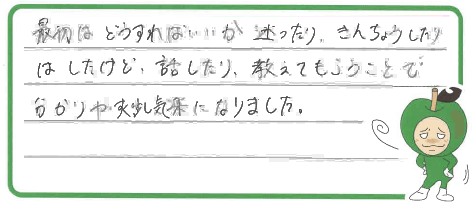 最初は どうすればいいか 迷ったり、きんちょうしたり
はしたけど、話したり、教えてもらうことで
分かりや
になりました。